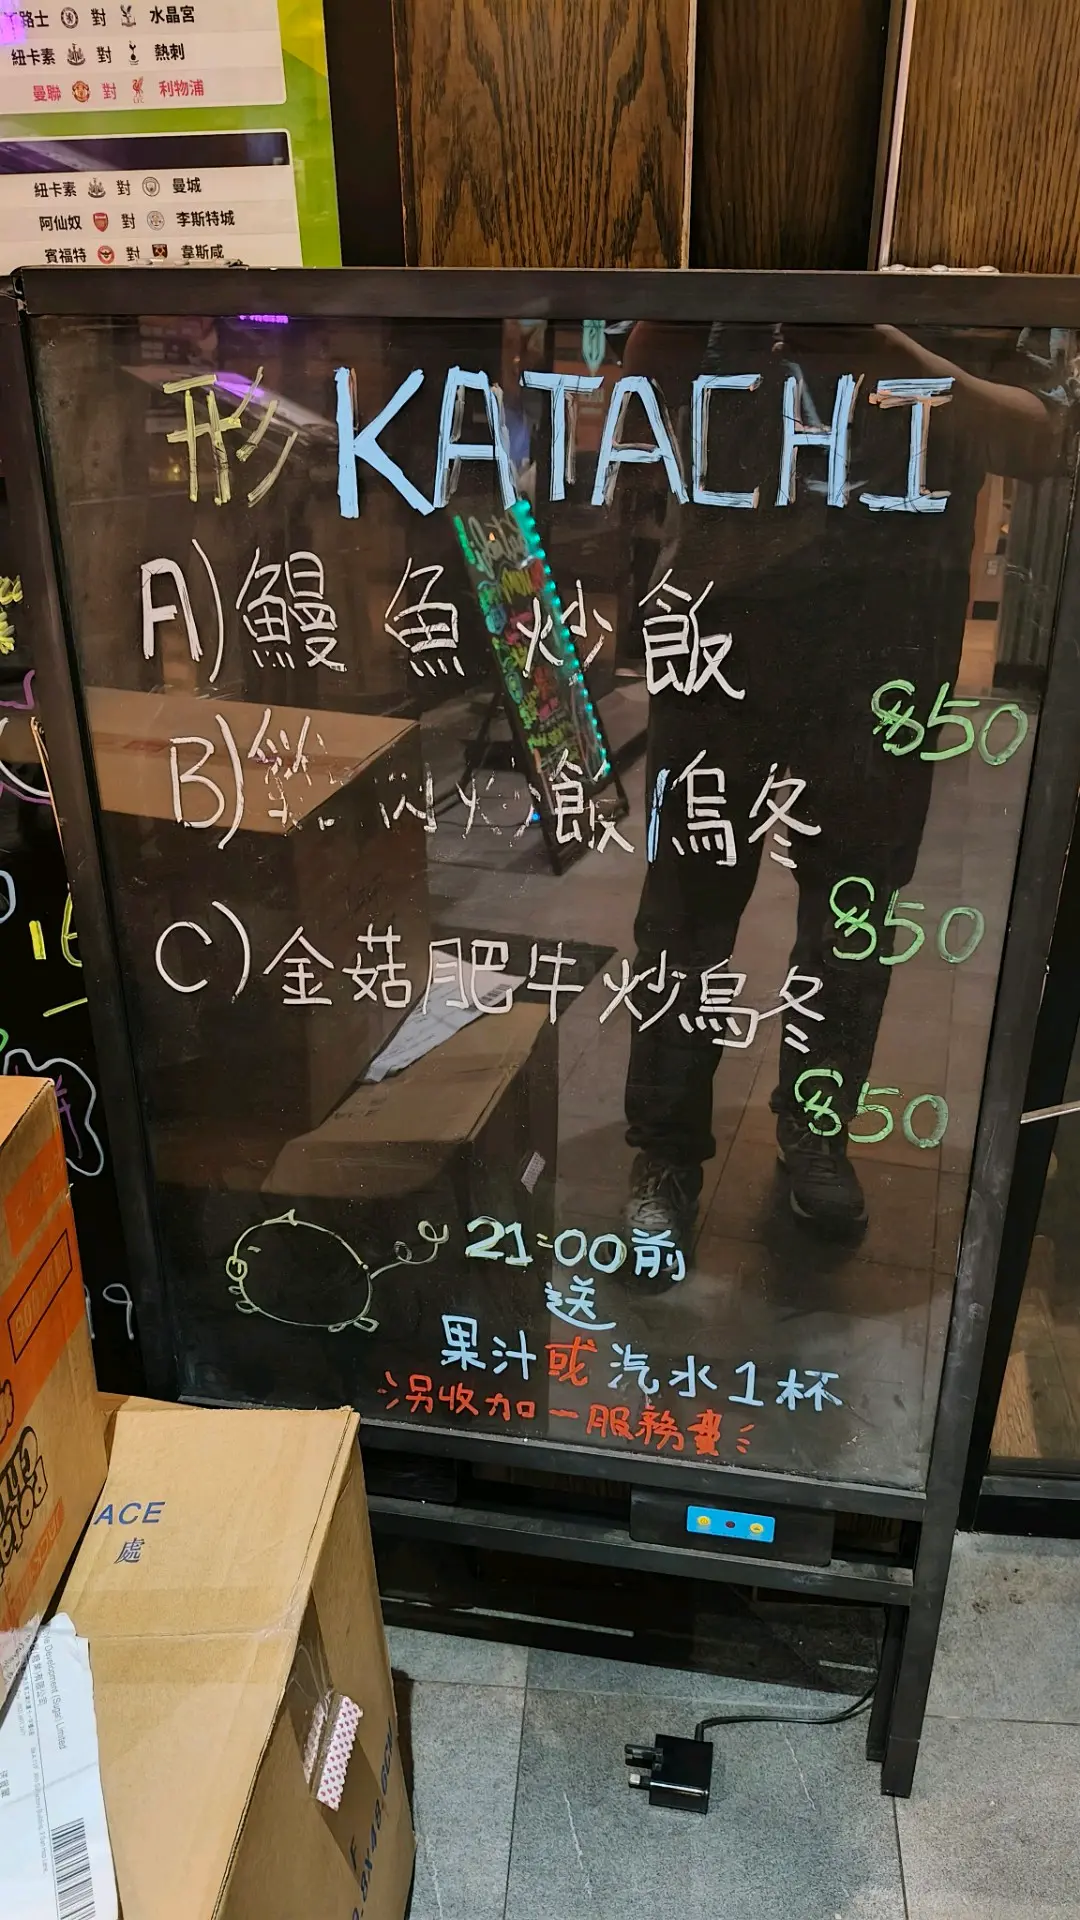 對 水晶宮
紐卡素 對 熱刺
曼聯 對 利物浦
紐卡素 對 曼城
阿仙奴 對 李斯特城
賓福特 對 韋斯咸
形 KATACHI
A) 鰻魚炒飯
$50
B) 飯/烏冬
$50
C) 金菇肥牛炒烏冬
$50
21:00前
送
果汁或汽水1杯
另收加一服務費
ACE
處